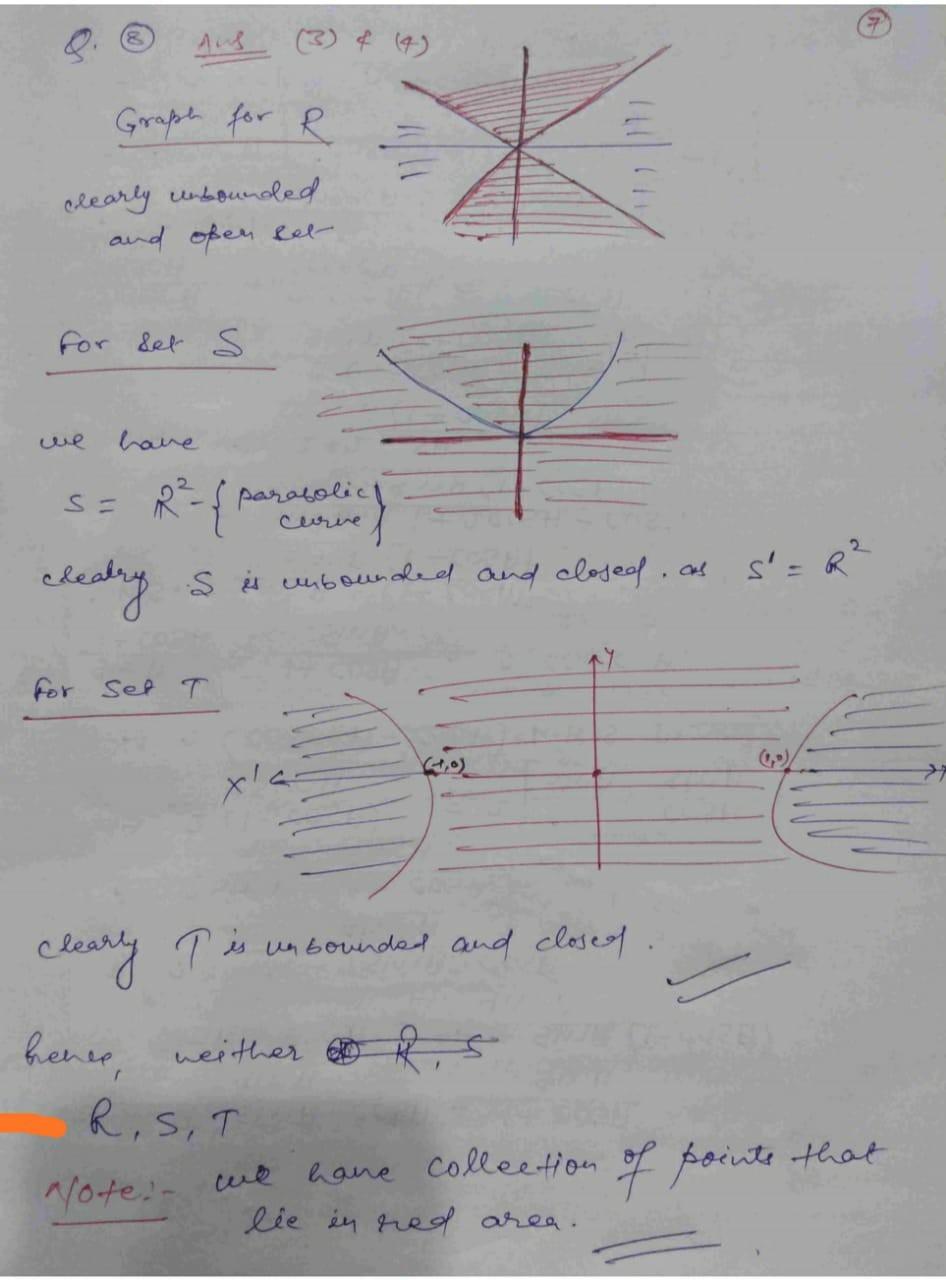 Q. 8 Ans (3) & (4)
7
Graph for R
clearly unbounded
and open set
for set S
we have
S = R² - { parabolic
curve }
cleary S is unbounded and closed. as S' = R²
for set T
Y
(-1,0)
(1,0)
X'
clearly T is unbounded and closed.
hence, neither R, S
R, S, T
Note:- we have collection of points that
lie in red area.